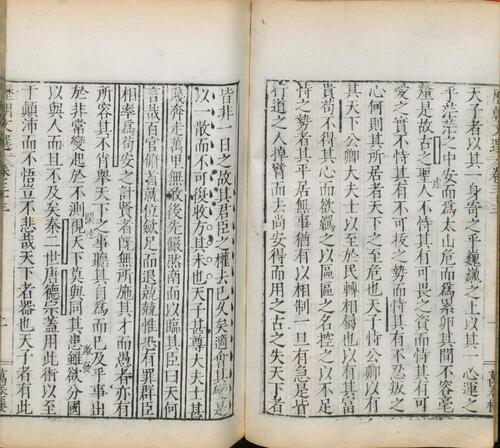 天子者以其一身寄之乎巍巍之上以其一心運之
乎茫茫之中安而爲太山危而爲累卵其間不容毫
釐是故古之聖人不恃其有可畏之資而恃其有可
愛之實不恃其有不可拔之勢而恃其有不忍叛之
心何則其所居者天下之至危也天子恃公卿以有
其天下公卿大夫士以至於民轉相屬也以有其富
貴苟不得其心而欲羈之以區區之名控之以不足
恃之勢者其平居無事猶有以相制一旦有急是皆
行道之人掉臂而去尚安得而用之古之失天下者
皆非一日之故其君臣之權去已久矣適會其變是
以一散而不可復收方其未也天子甚尊大夫士甚
賤奔走萬里無敢後先儼然南面以臨其臣曰天何
言哉百官俯首就位斂足而退兢兢惟恐有罪群臣
相率爲苟安之計賢者旣無所施其才而愚者亦有
所容其不肖舉天下之事聽其自爲而已及乎事出
於非常變起於不測視天下莫與同其患雖欲分國
以與人而且不及矣秦二世唐德宗蓋用此術以至
于顛沛而不悟豈不悲哉天下者器也天子者有此